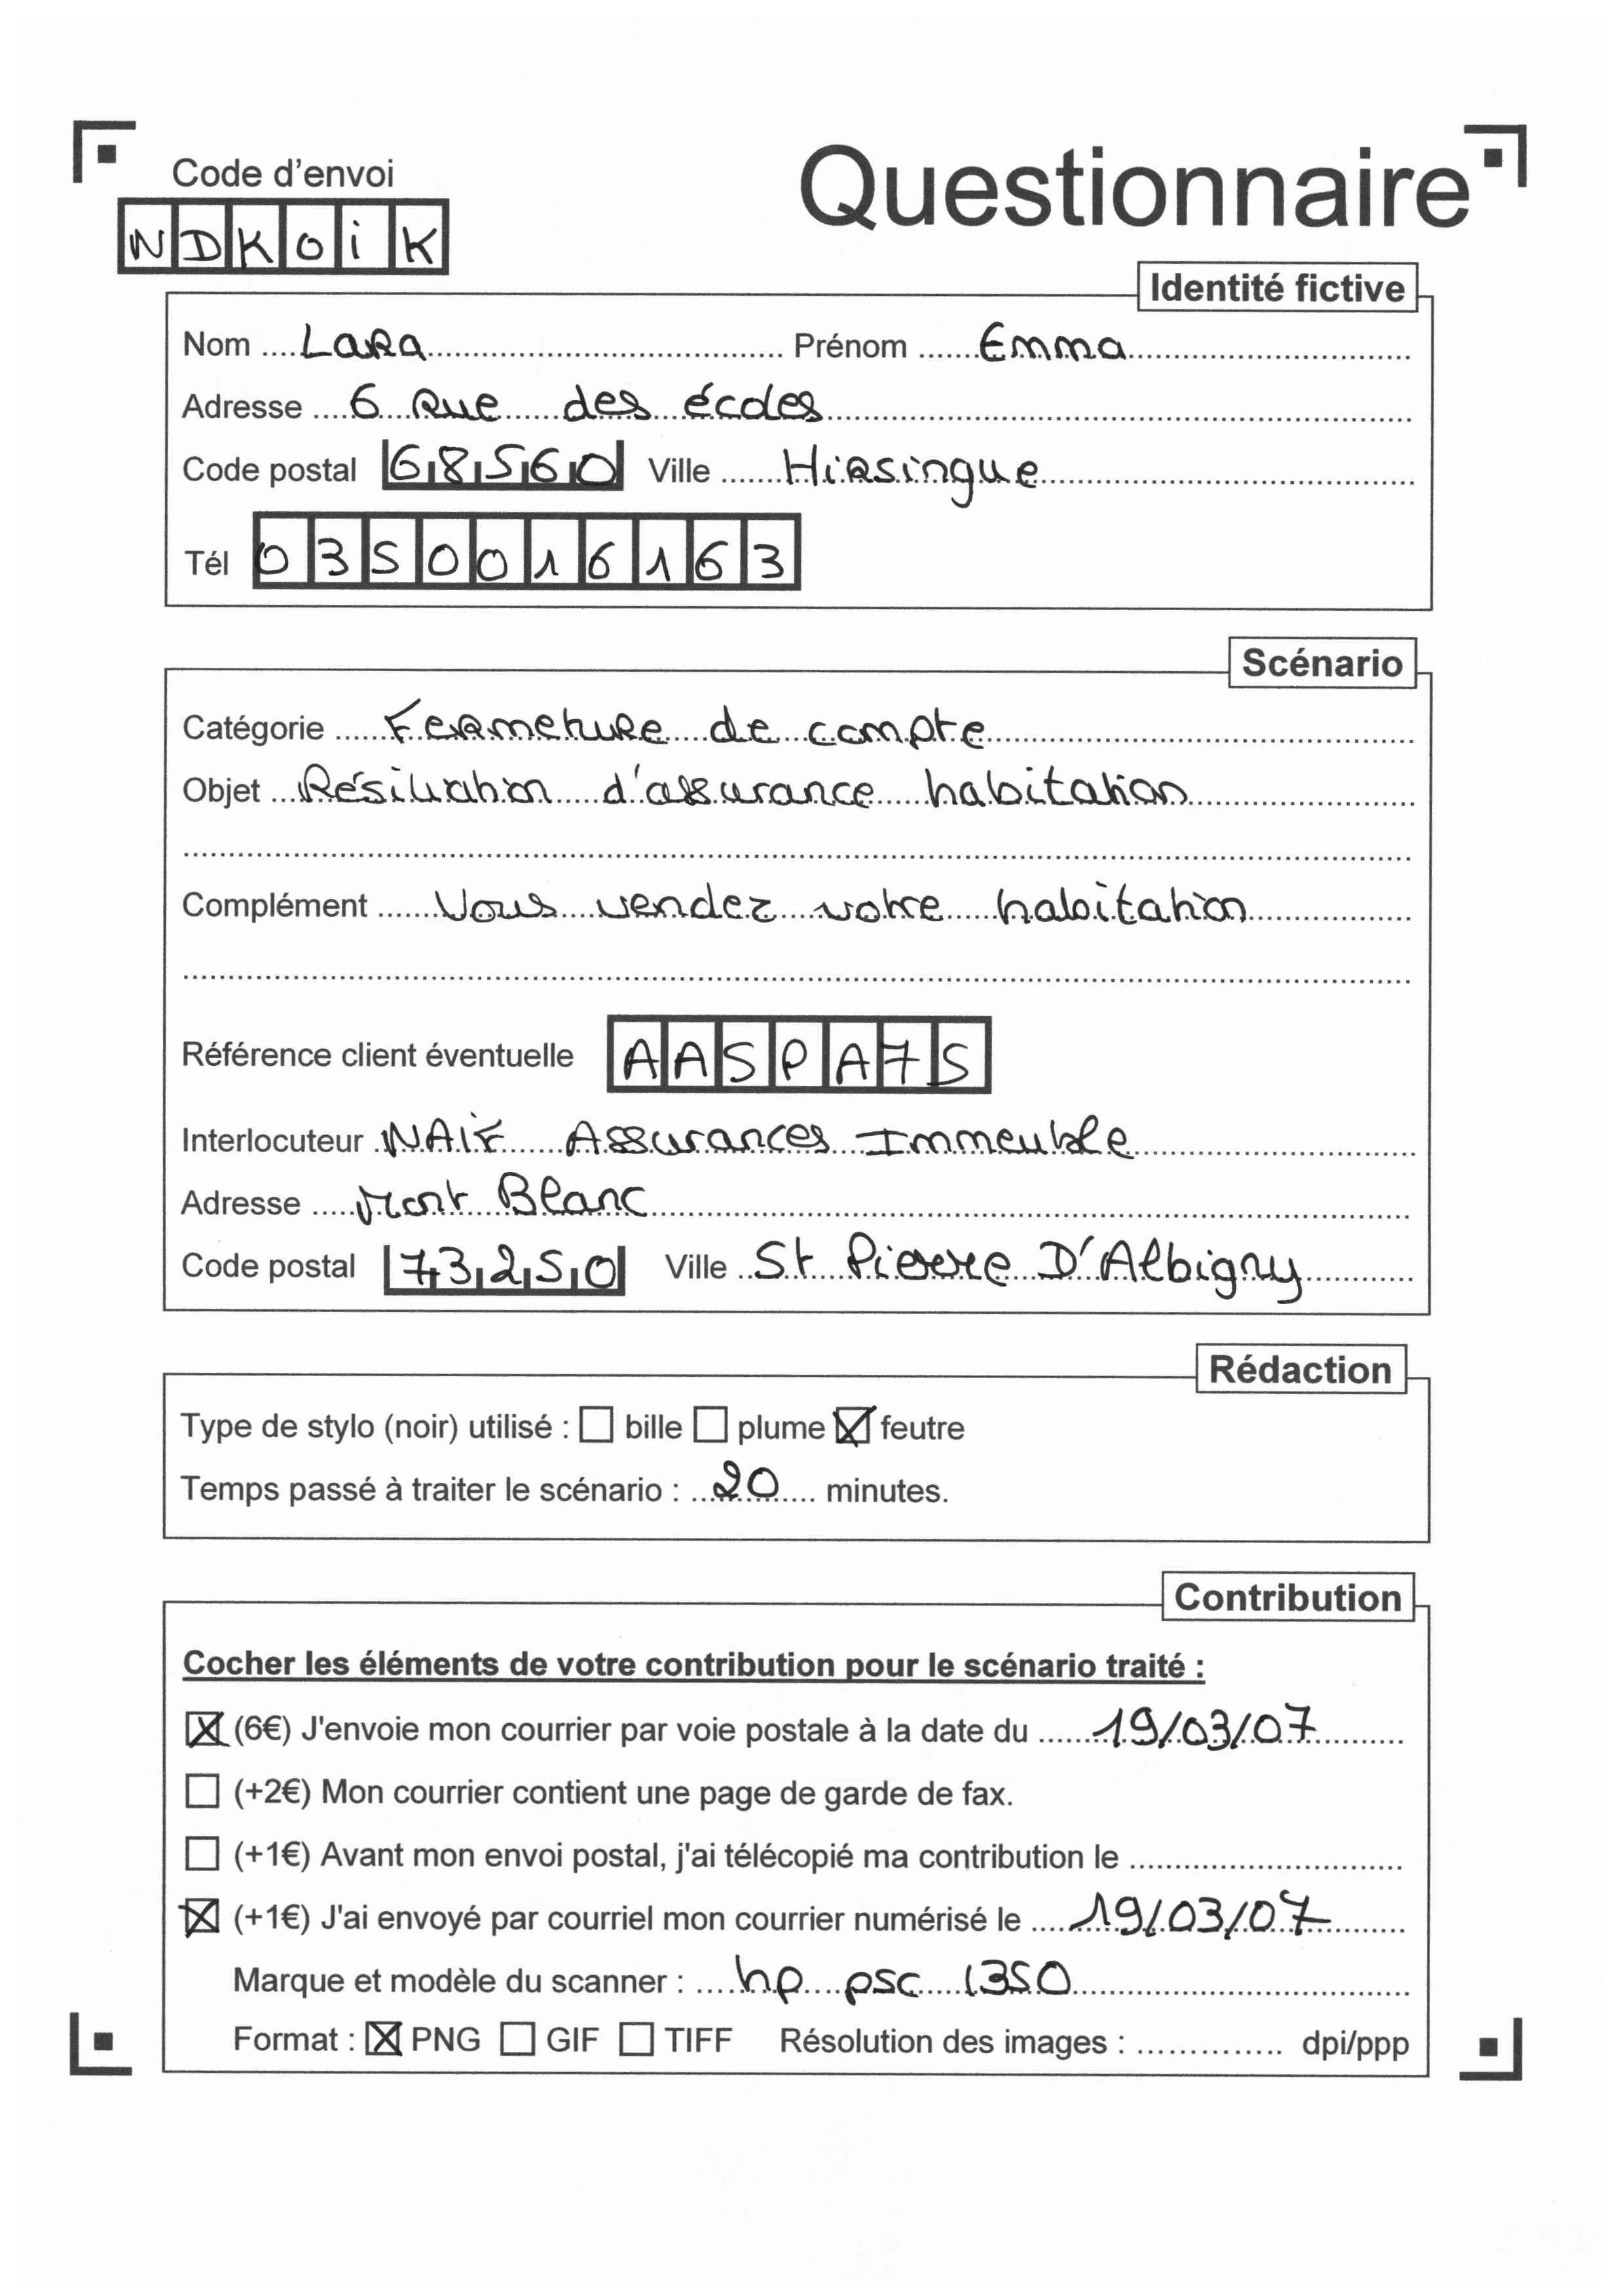 Code d'envoi
Questionnaire
NDKOiK
Identité fictive
Nom LARA Prénom Emma
Adresse 6 Rue des écoles
Code postal 68560 Ville Hirsingue
Tél 0350016163
Scénario
Catégorie Fermeture de compte
Objet Résiliation d'assurance habitation
Complément Vous vendez votre habitation
Référence client éventuelle AASPA7S
Interlocuteur NAIF Assurances Immeuble
Adresse Mont Blanc
Code postal 73250 Ville St Pierre D'Albigny
Rédaction
Type de stylo (noir) utilisé : ☐ bille ☐ plume ☒ feutre
Temps passé à traiter le scénario : 20 minutes.
Contribution
Cocher les éléments de votre contribution pour le scénario traité :
☒ (6€) J'envoie mon courrier par voie postale à la date du 19/03/07
☐ (+2€) Mon courrier contient une page de garde de fax.
☐ (+1€) Avant mon envoi postal, j'ai télécopié ma contribution le
☒ (+1€) J'ai envoyé par courriel mon courrier numérisé le 19/03/07
Marque et modèle du scanner : hp psc 1350
Format : ☒ PNG ☐ GIF ☐ TIFF Résolution des images : dpi/ppp